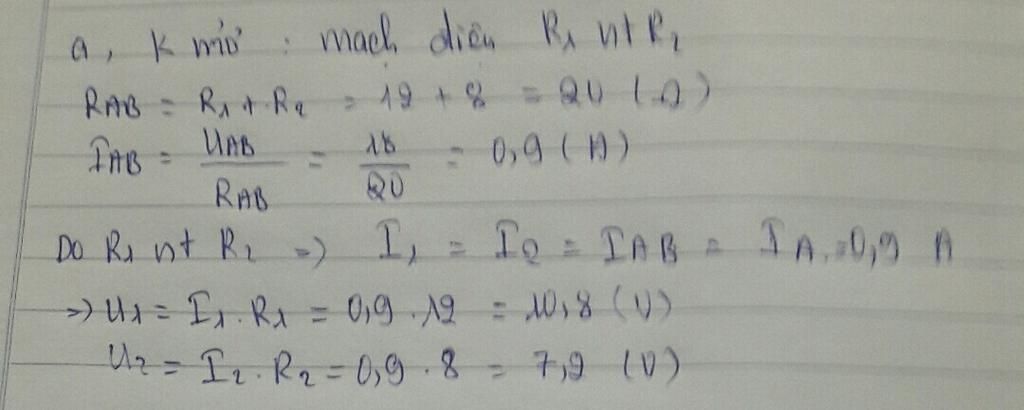 a, K mở : mạch điện R1 nt R2
RAB = R1 + R2 = 12 + 8 = 20 (Ω)
IAB = UAB / RAB = 18 / 20 = 0,9 (A)
Do R1 nt R2 => I1 = I2 = IAB = IA = 0,9 A
=> U1 = I1 . R1 = 0,9 . 12 = 10,8 (V)
U2 = I2 . R2 = 0,9 . 8 = 7,2 (V)